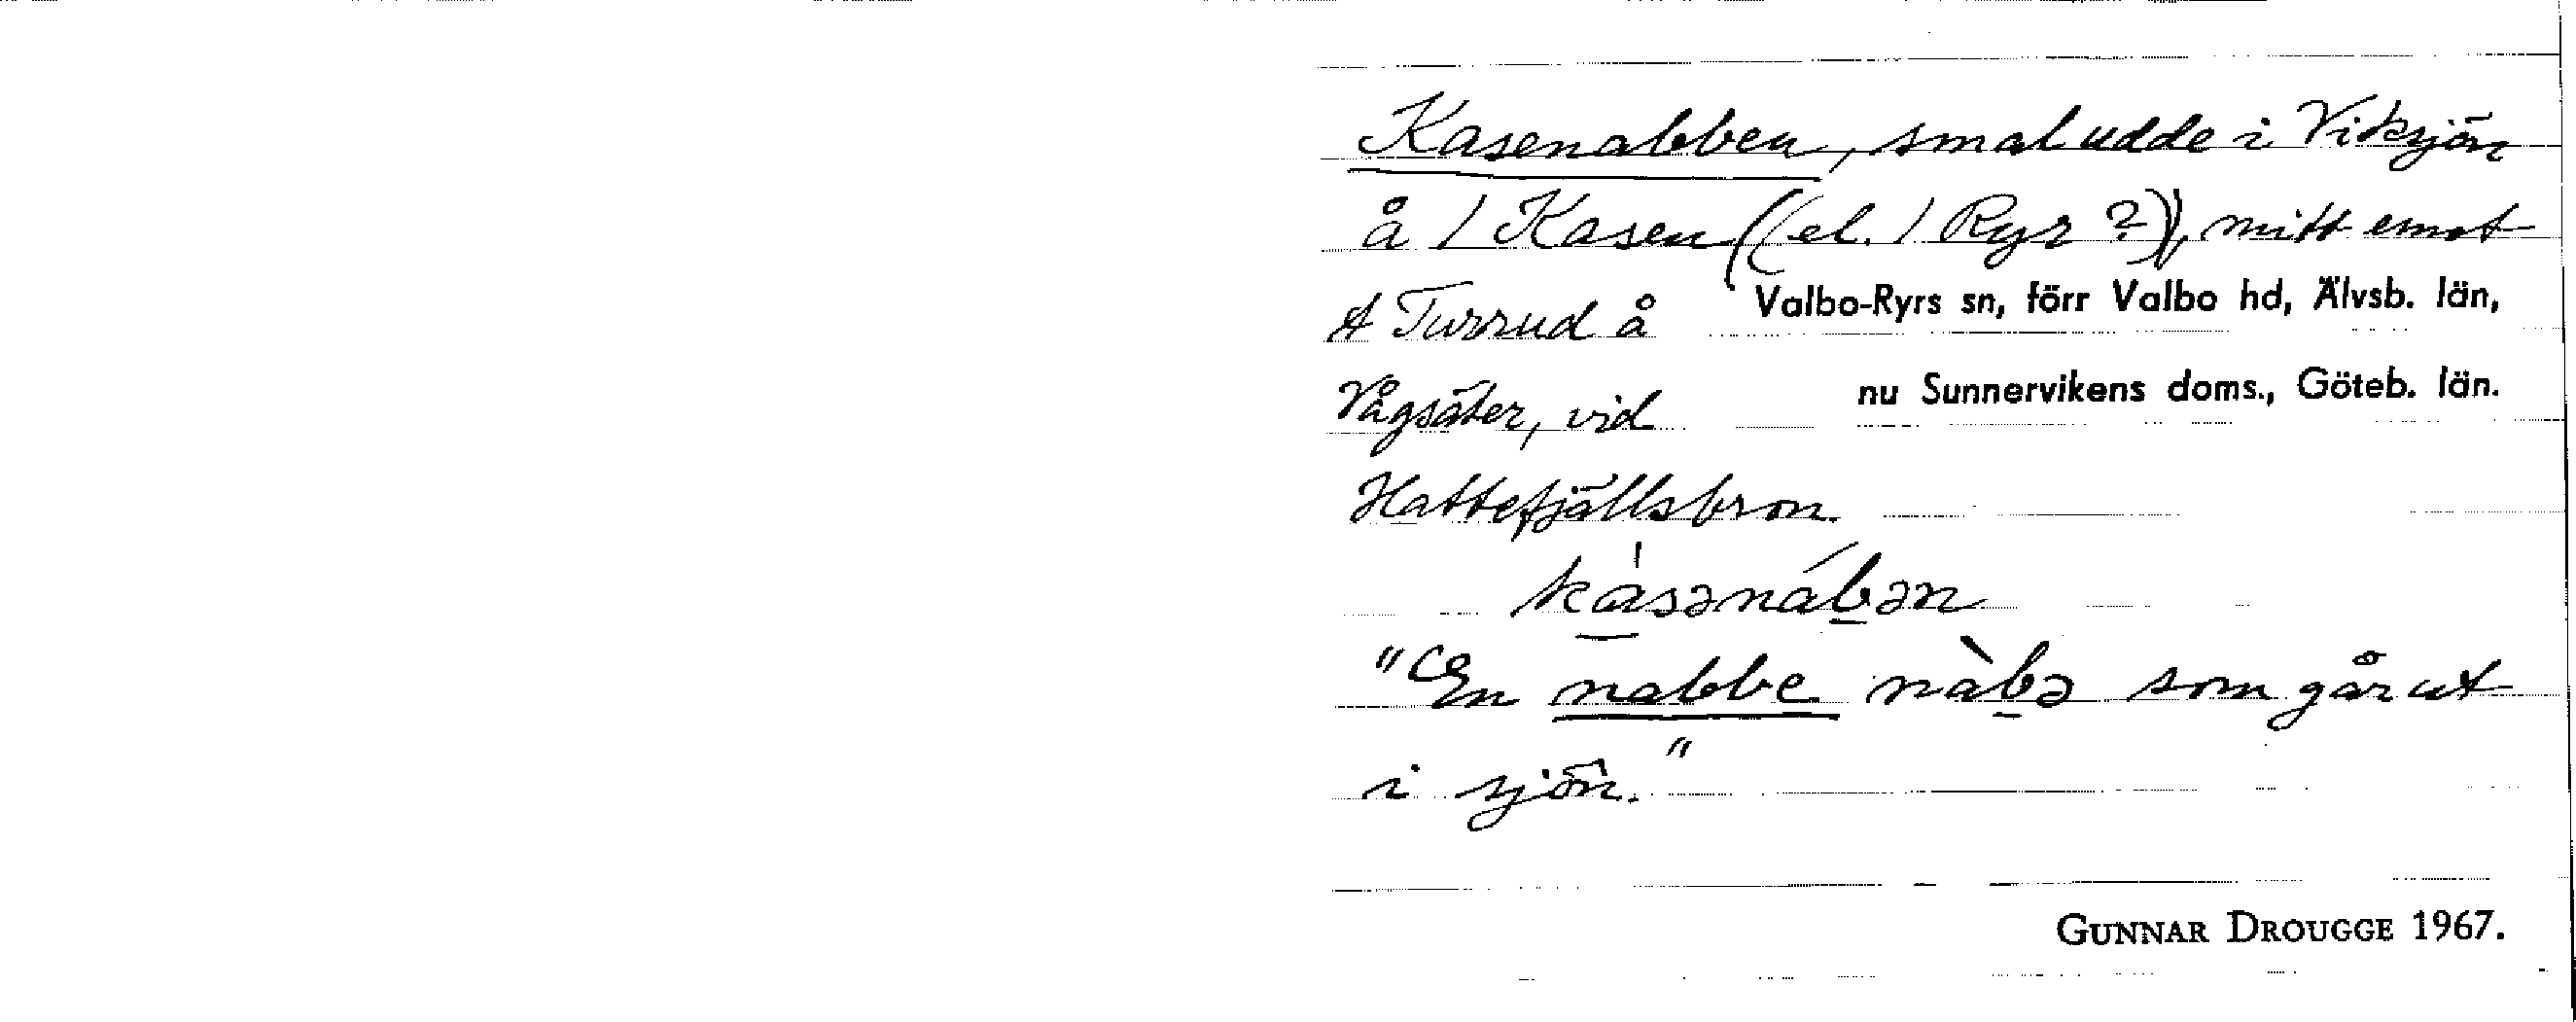 Kasenabben, smal udde i Viksjön
å / Kasen ((el. / Ryr ?)), mitt emot
Valbo-Ryrs sn, förr Valbo hd, Älvsb. län,
t Turrud å
nu Sunnervikens doms., Göteb. län.
Vågsäter, vid
Hattefjällsbron.
kàsənábən
"En nabbe nàbə som går ut
i sjön."
GUNNAR DROUGGE 1967.